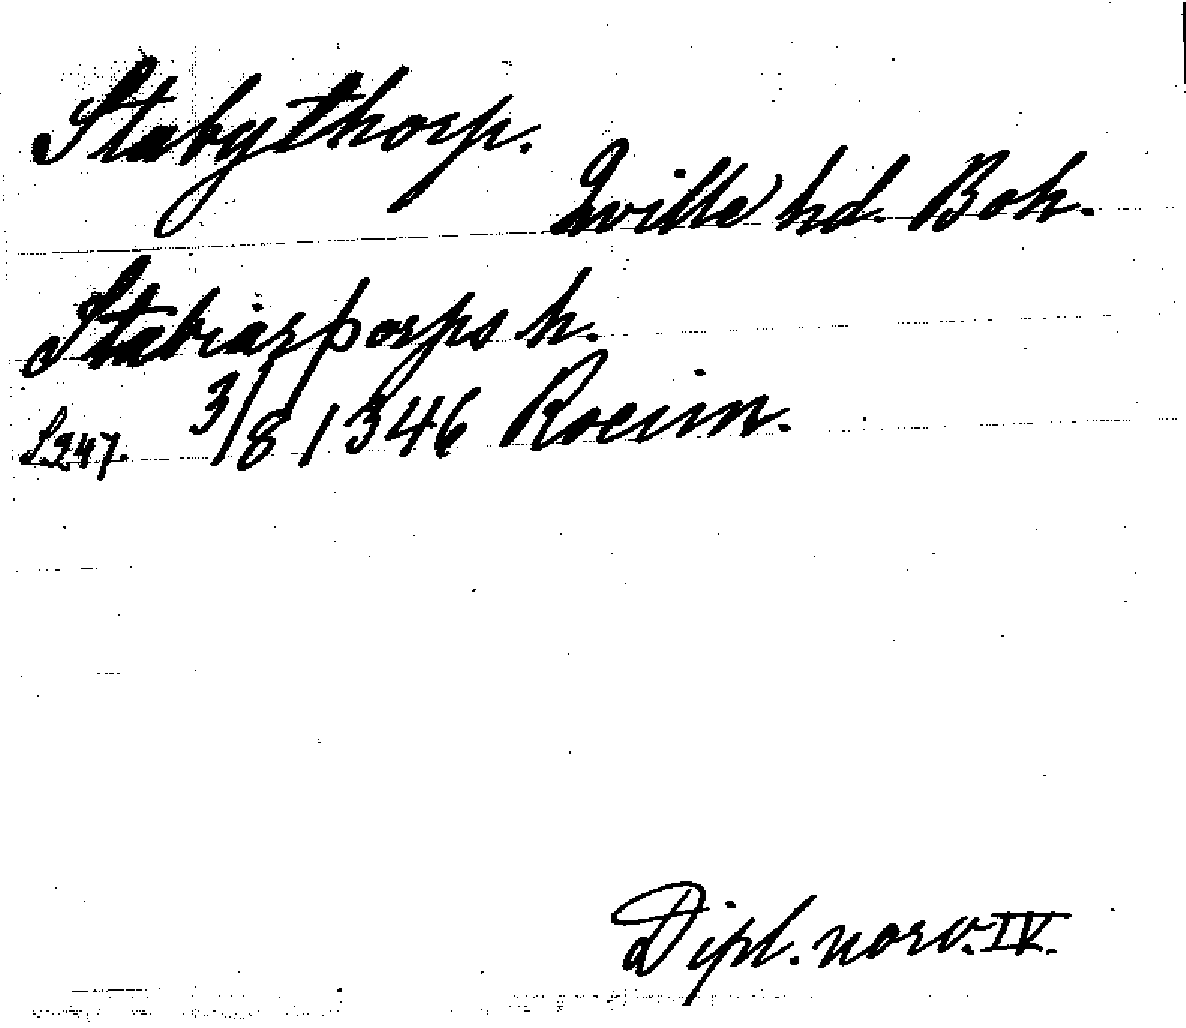 Stabygthorp.
Qville hd. Boh.
Stabiarþorps h.
S.247. 3/8 1346 Rocum.
Dipl. norv. IV.